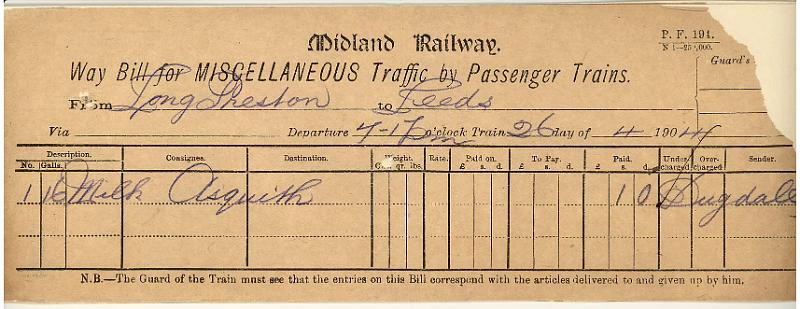 Midland Railway.
P. F. 194.
N 1—25 ,000.
Way Bill for MISCELLANEOUS Traffic by Passenger Trains.
Guard's
From Long Preston to Leeds
Via Departure 7-17 pm o'clock Train 26 day of 4 1904
Description. Consignee. Destination. Weight. Rate. Paid on. To Pay. Paid. Under charged Over- charged Sender.
No. Galls. Cwt. qr. lbs. £ s. d. £ s. d. £ s. d.
1 16 Milk Asquith 1 0 Dugdale
N.B.—The Guard of the Train must see that the entries on this Bill correspond with the articles delivered to and given up by him.